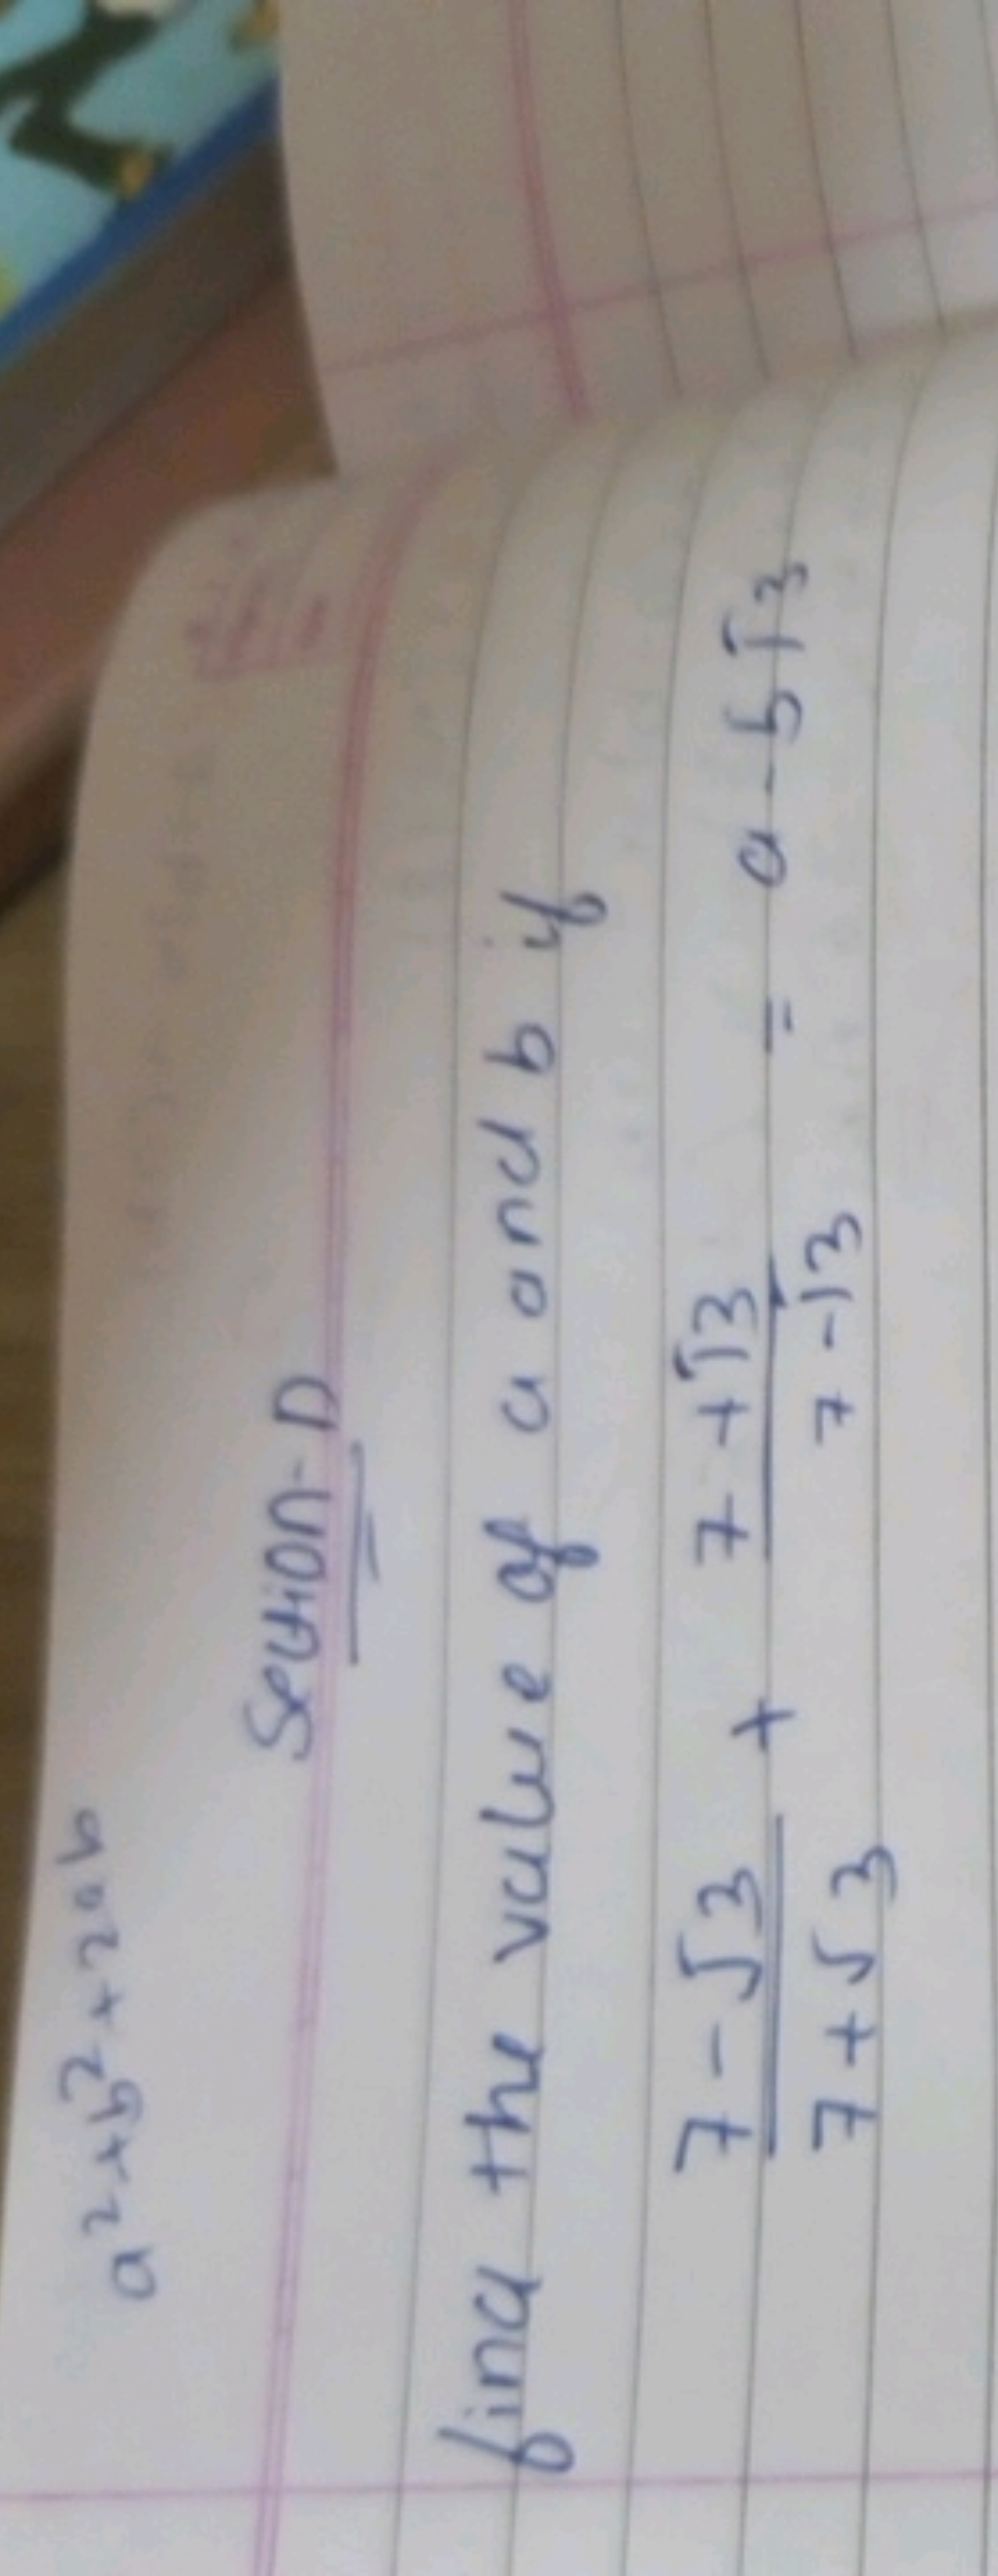 a²+b²+2ab
Section-D
find the value of a and b if
7-√3 + 7+√3 = a-b√3
7+√3 7-√3